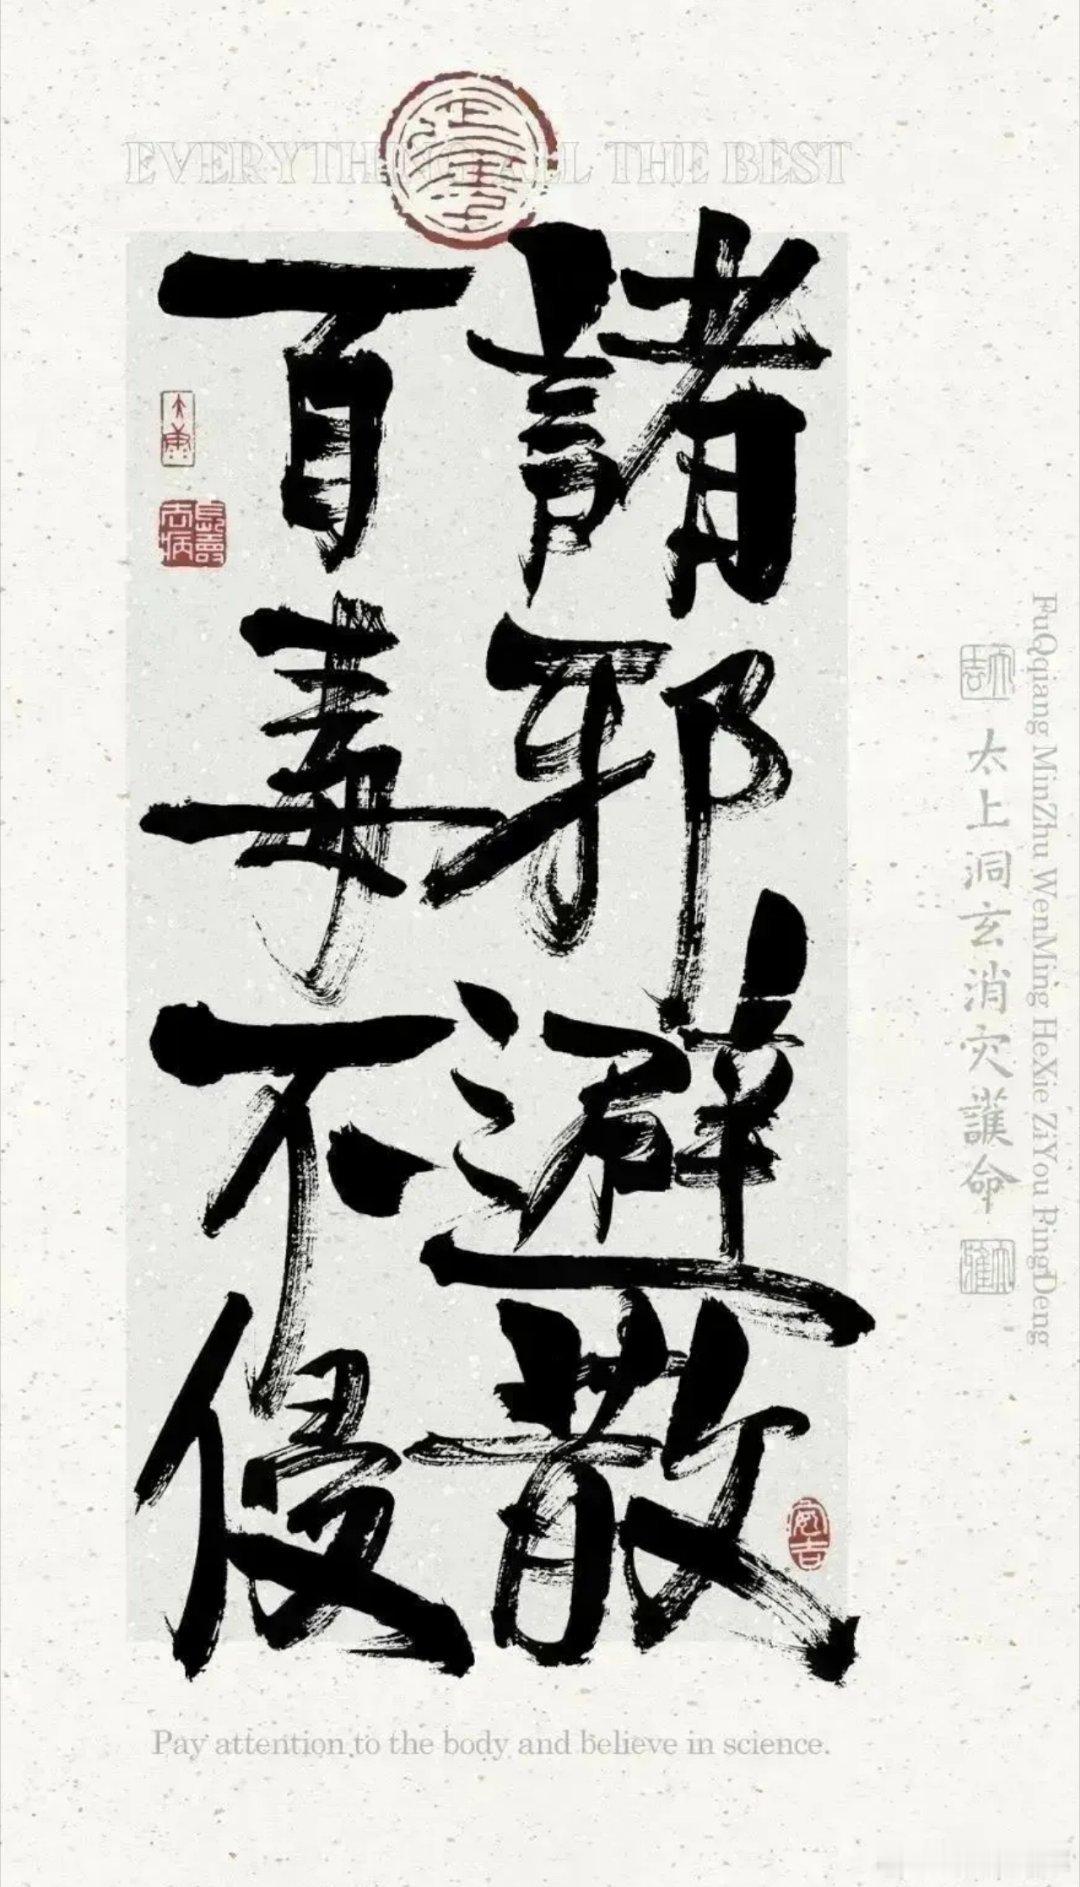 EVERYTHING ALL THE BEST
諸邪避散
百毒不侵
長壽
去病
太上洞玄消灾護命
FuQqiang MinZhu WenMing HeXie ZiYou PingDeng
Pay attention to the body and believe in science.